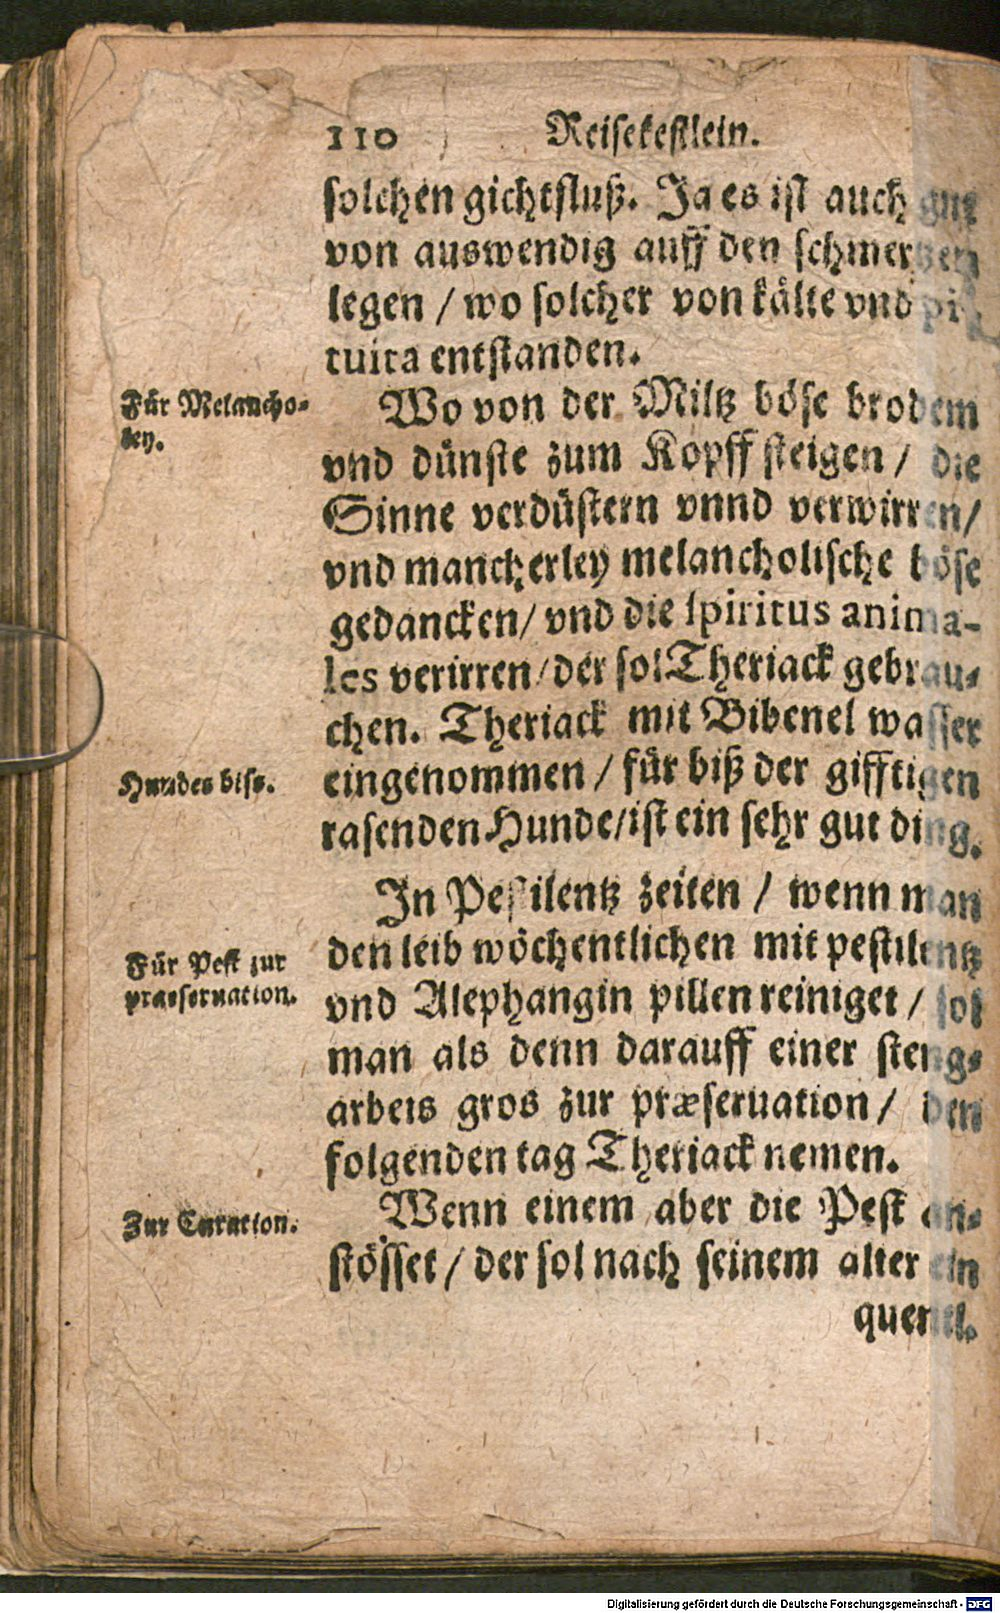 110 Reisekestlein.
solchen gichtfluß. Ja es ist auch gut
von auswendig auff den schmertzen
legen / wo solcher von kälte vnd pi-
tuita entstanden.
Für Melancho-
ley.
Wo von der Miltz böse brodem
vnd dünste zum Kopff steigen / die
Sinne verdüstern vnnd verwirren /
vnd mancherley melancholische böse
gedancken / vnd die spiritus anima-
les verirren / der sol Theriack gebrau-
chen. Theriack mit Bibenel wasser
Hundes biss.
eingenommen / für biß der gifftigen
rasenden Hunde / ist ein sehr gut ding.
In Pestilentz zeiten / wenn man
Für Pest zur
praeseruation.
den leib wöchentlichen mit pestilentz
vnd Alephangin pillen reiniget / sol
man als denn darauff einer steng-
arbeis gros zur præseruation / den
folgenden tag Theriack nemen.
Zur Curation.
Wenn einem aber die Pest an-
stösset / der sol nach seinem alter ein
Digitalisierung gefördert durch die Deutsche Forschungsgemeinschaft - DFG